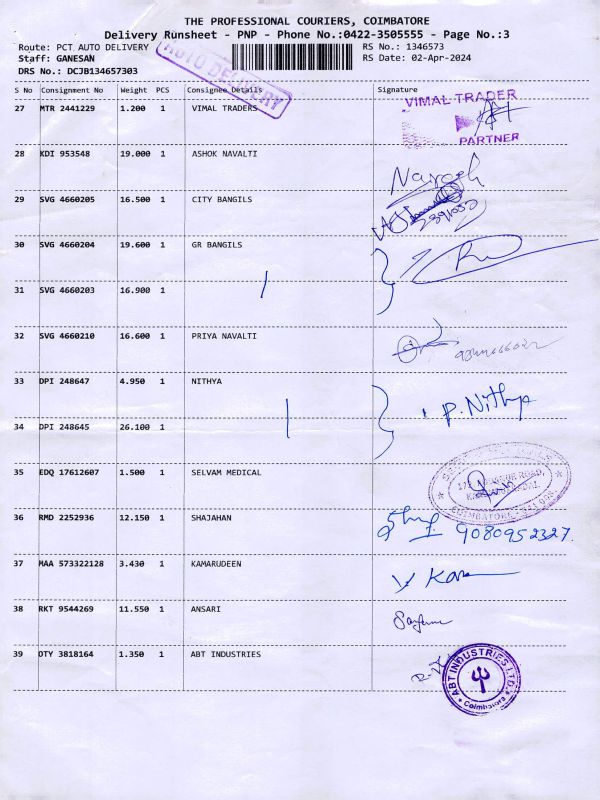 THE PROFESSIONAL COURIERS, COIMBATORE
Delivery Runsheet - PNP - Phone No.:0422-3505555 - Page No.:3
Route: PCT AUTO DELIVERY RS No.: 1346573
Staff: GANESAN RS Date: 02-Apr-2024
DRS No.: DCJB134657303
AUTO DELIVERY
S No Consignment No Weight PCS Consignee Details Signature
27 MTR 2441229 1.200 1 VIMAL TRADERS
VIMAL TRADER
PARTNER
28 KDI 953548 19.000 1 ASHOK NAVALTI
29 SVG 4660205 16.500 1 CITY BANGILS
30 SVG 4660204 19.600 1 GR BANGILS
31 SVG 4660203 16.900 1
32 SVG 4660210 16.600 1 PRIYA NAVALTI
33 DPI 248647 4.950 1 NITHYA
P. Nithya
34 DPI 248645 26.100 1
35 EDQ 17612607 1.500 1 SELVAM MEDICAL
COIMBATORE
36 RMD 2252936 12.150 1 SHAJAHAN
9080952327.
37 MAA 573322128 3.430 1 KAMARUDEEN
38 RKT 9544269 11.550 1 ANSARI
39 DTY 3818164 1.350 1 ABT INDUSTRIES
ABT INDUSTRIES LTD.
Coimbatore